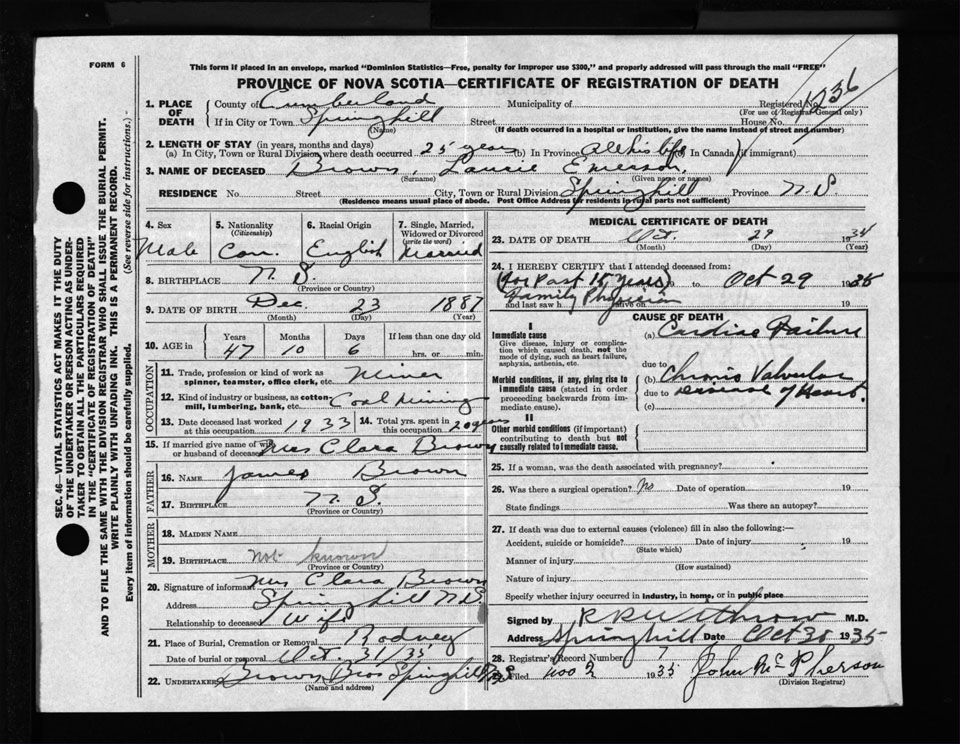 FORM 6
This form if placed in an envelope, marked "Dominion Statistics—Free, penalty for improper use $300," and properly addressed will pass through the mail "FREE"
PROVINCE OF NOVA SCOTIA—CERTIFICATE OF REGISTRATION OF DEATH
1. PLACE OF DEATH County of Cumberland Municipality of Registered No. 1236
(For use of Registrar-General only)
If in City or Town Springhill Street House No.
(Name) (If death occurred in a hospital or institution, give the name instead of street and number)
2. LENGTH OF STAY (in years, months and days)
(a) In City, Town or Rural Division where death occurred 25 years (b) In Province All his life (c) In Canada (if immigrant)
3. NAME OF DECEASED Brown, Laurie Emerson,
(Surname) (Given name or names)
RESIDENCE No. Street City, Town or Rural Division Springhill Province N.S.
(Residence means usual place of abode. Post Office Address for residents in rural parts not sufficient)
4. Sex 5. Nationality (Citizenship) 6. Racial Origin 7. Single, Married, Widowed or Divorced (write the word)
Male Can. English Married
8. BIRTHPLACE N. S.
(Province or Country)
9. DATE OF BIRTH Dec. 23 1887
(Month) (Day) (Year)
10. AGE in Years Months Days If less than one day old
47 10 6 hrs. or min.
OCCUPATION
11. Trade, profession or kind of work as spinner, teamster, office clerk, etc. Miner
12. Kind of industry or business, as cotton mill, lumbering, bank, etc. Coal Mining
13. Date deceased last worked at this occupation 1933 14. Total yrs. spent in this occupation 20 years
15. If married give name of wife or husband of deceased Mrs Clara Brown
FATHER
16. NAME James Brown
17. BIRTHPLACE N. S.
(Province or Country)
MOTHER
18. MAIDEN NAME
19. BIRTHPLACE not known
(Province or Country)
20. Signature of informant Mrs Clara Brown
Address Springhill N.S.
Relationship to deceased Wife
21. Place of Burial, Cremation or Removal Rodney
Date of burial or removal Oct. 31/35
22. UNDERTAKER Brown Bros Springhill N.S
(Name and address)
MEDICAL CERTIFICATE OF DEATH
23. DATE OF DEATH Oct. 29 1934
(Month) (Day) (Year)
24. I HEREBY CERTIFY that I attended deceased from:
(for Past 15 years) 19 to Oct 29 1935
Family Physician
and last saw h alive on 19
CAUSE OF DEATH
I
Immediate cause (a) Cardiac Failure
Give disease, injury or complication which caused death, not the mode of dying, such as heart failure, asphyxia, asthenia, etc.
due to
Morbid conditions, if any, giving rise to immediate cause (stated in order proceeding backwards from immediate cause).
(b) Chronic Valvular
due to disease of Heart.
(c)
II
Other morbid conditions (if important) contributing to death but not causally related to immediate cause.
25. If a woman, was the death associated with pregnancy?
26. Was there a surgical operation? No Date of operation 19
State findings Was there an autopsy?
27. If death was due to external causes (violence) fill in also the following:—
Accident, suicide or homicide? Date of injury 19
(State which)
Manner of injury
(How sustained)
Nature of injury
Specify whether injury occurred in industry, in home, or in public place
Signed by M.D.
Address Springhill Date Oct 30 1935
28. Registrar's Record Number 7
Filed Nov 2 1935 John McPherson
(Division Registrar)
SEC. 46—VITAL STATISTICS ACT MAKES IT THE DUTY
OF THE UNDERTAKER OR PERSON ACTING AS UNDERTAKER
TO OBTAIN ALL THE PARTICULARS REQUIRED
IN THE "CERTIFICATE OF REGISTRATION OF DEATH"
AND TO FILE THE SAME WITH THE DIVISION REGISTRAR WHO SHALL ISSUE THE BURIAL PERMIT.
WRITE PLAINLY WITH UNFADING INK. THIS IS A PERMANENT RECORD.
Every item of information should be carefully supplied. (See reverse side for instructions.)